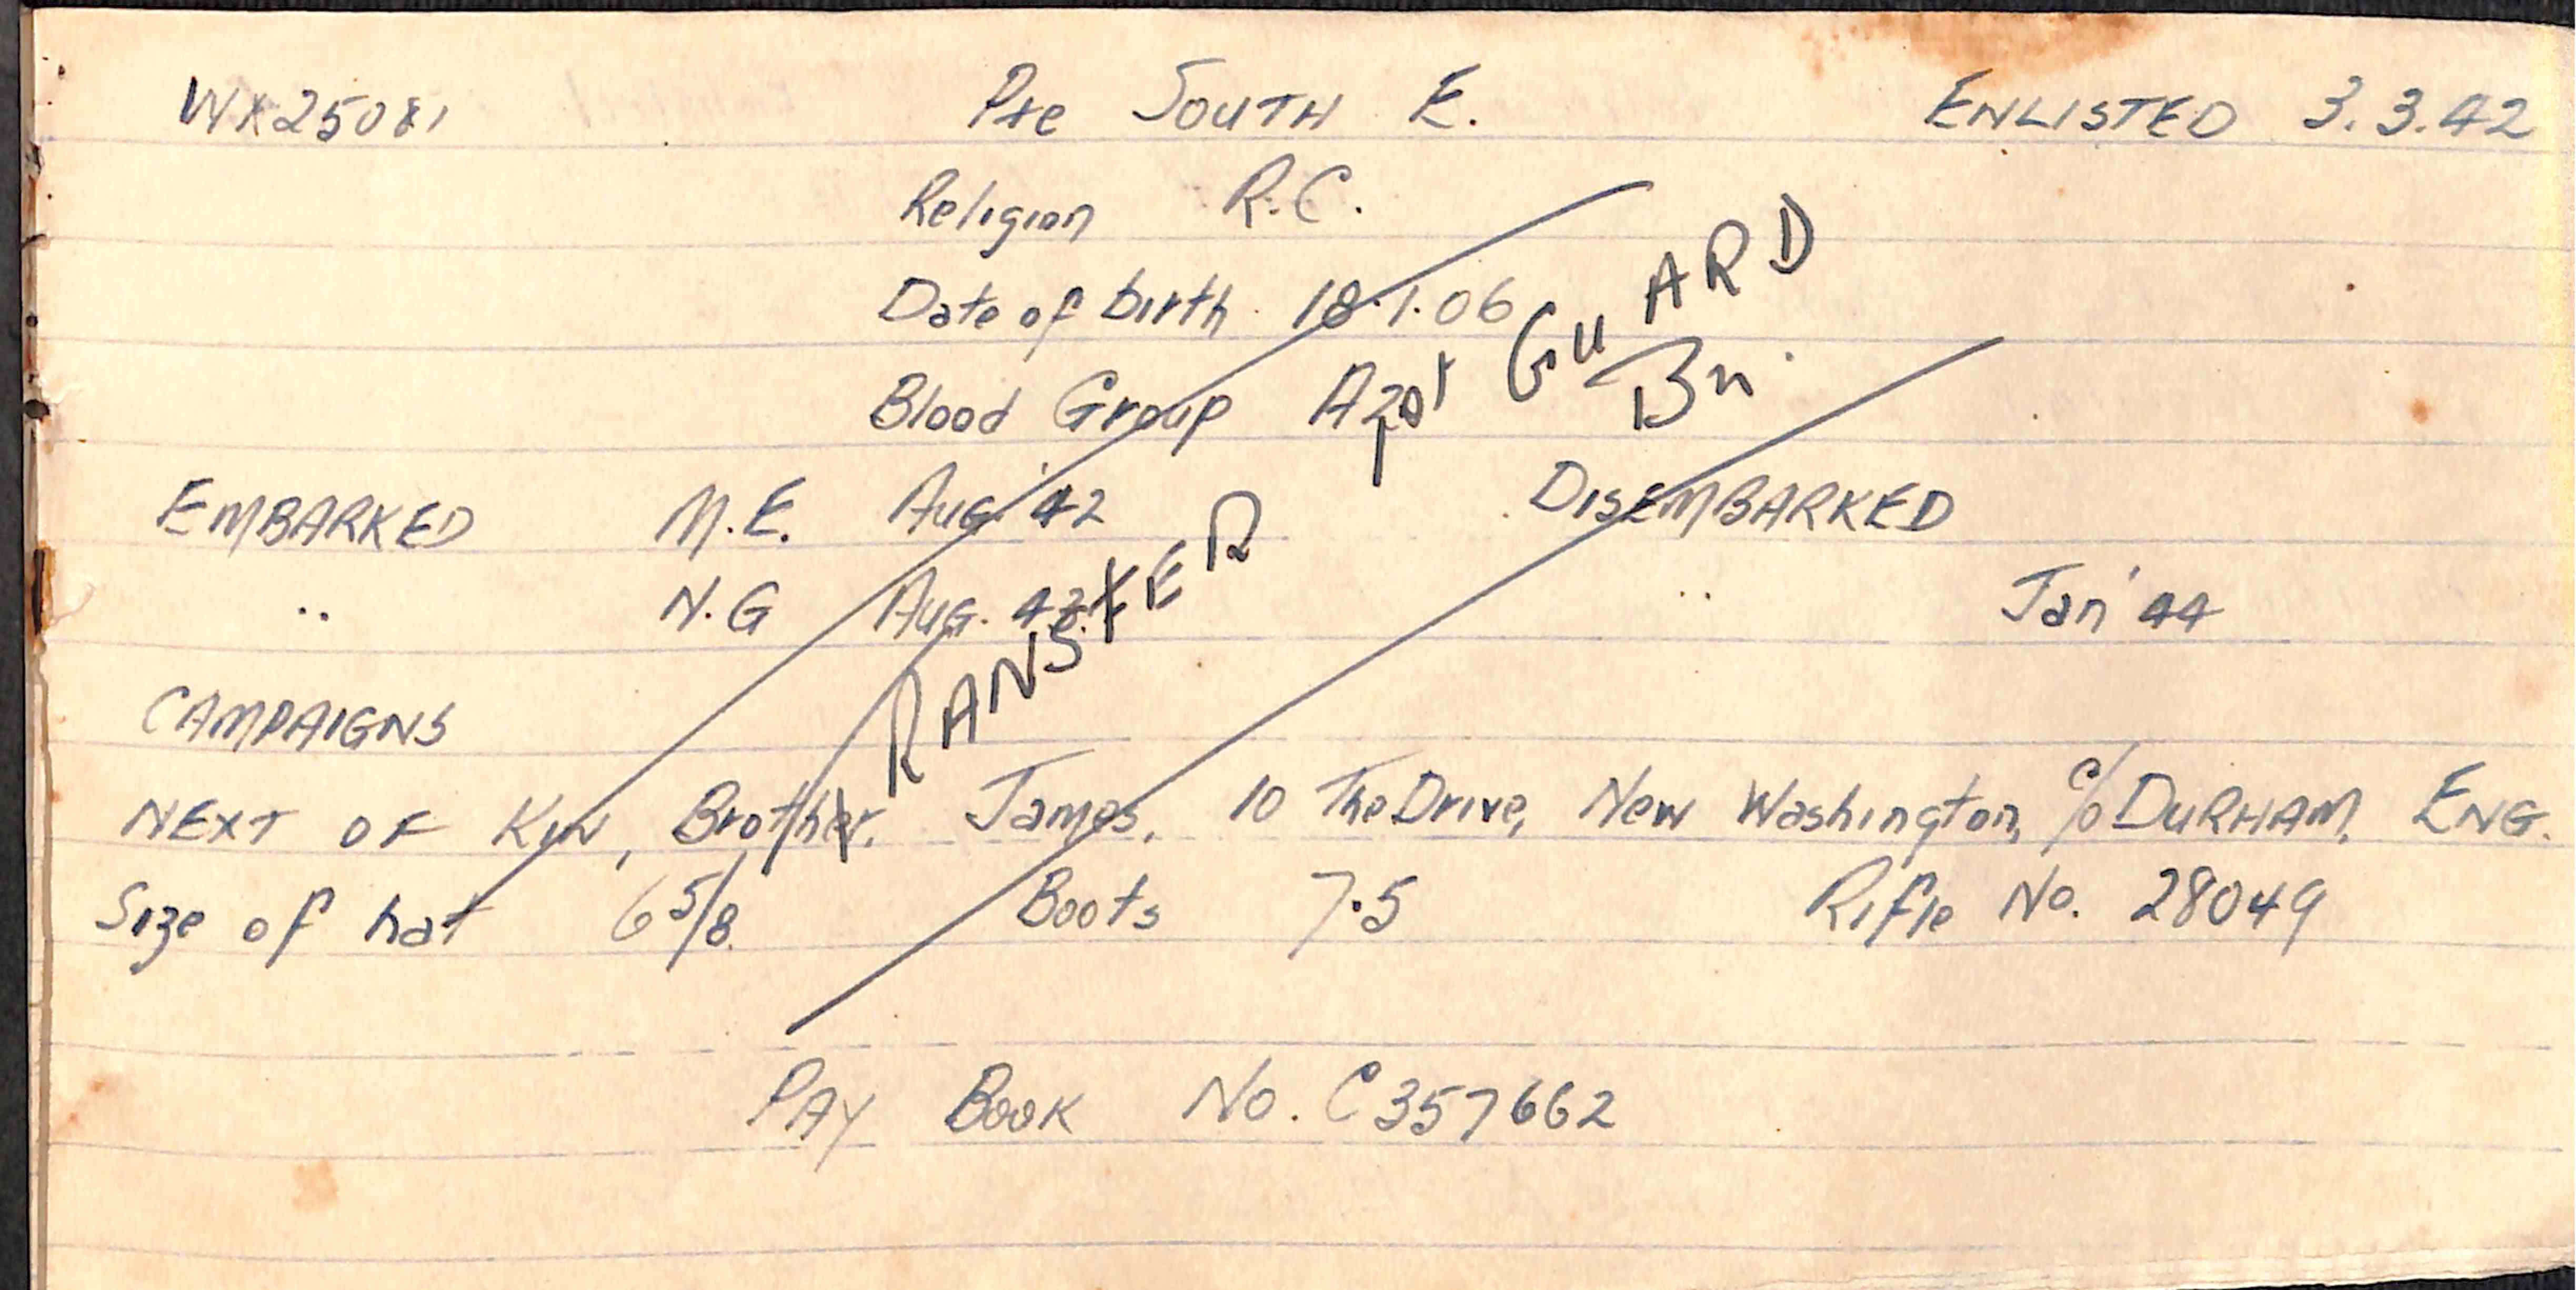 WX25081 Pte SOUTH E. ENLISTED 3.3.42
Religion R.C.
Date of birth 18.1.06
Blood Group A2
EMBARKED M.E. Aug. 42 DISEMBARKED
.. N.G Aug. 43. .. Jan '44
CAMPAIGNS
NEXT OF KIN, Brother. James, 10 The Drive, New Washington, C/o DURHAM, ENG.
Size of hat 6 5/8. Boots 7.5 Rifle No. 28049
PAY BOOK No. C357662
TRANSFER
GUARD
Bn.